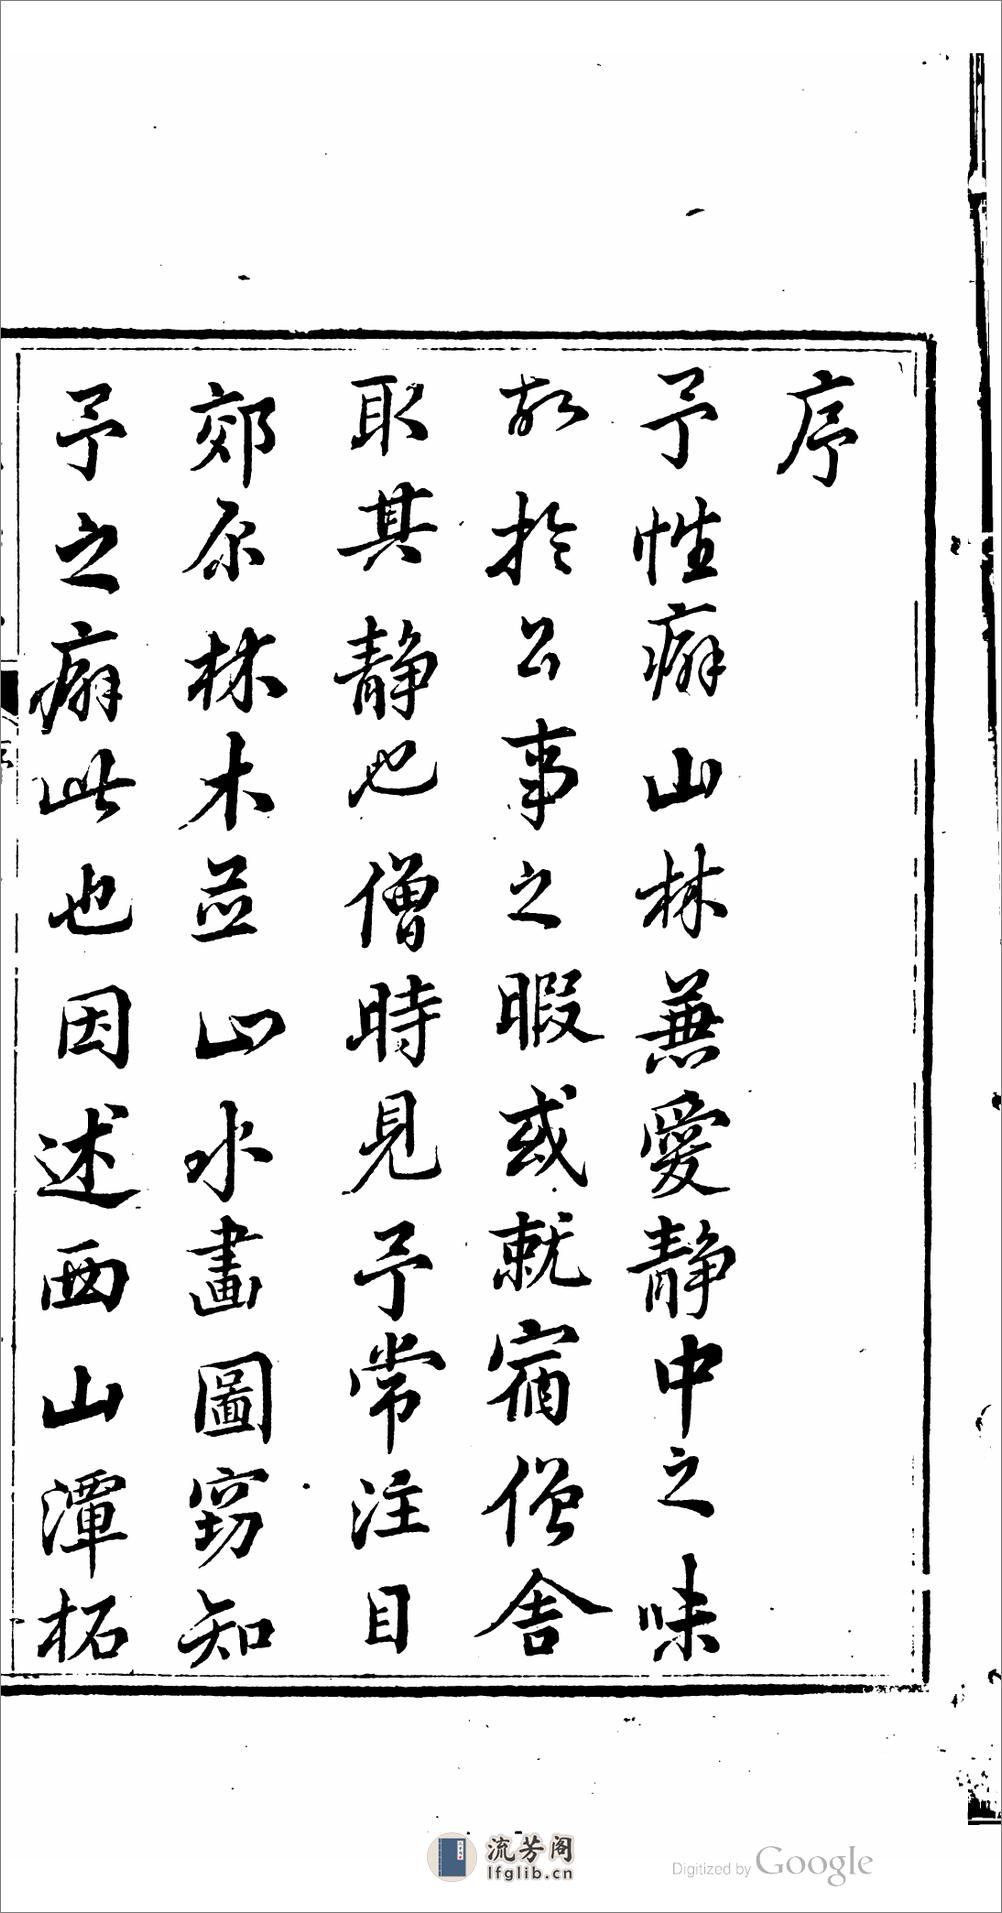 序
予性癖山林兼愛静中之味
故於公事之暇或就宿僧舎
取其静也僧時見予常注目
郊原林木並山水畫圖窃知
予之癖此也因述西山潭柘
流芳阁
lfglib.cn
Digitized by Google